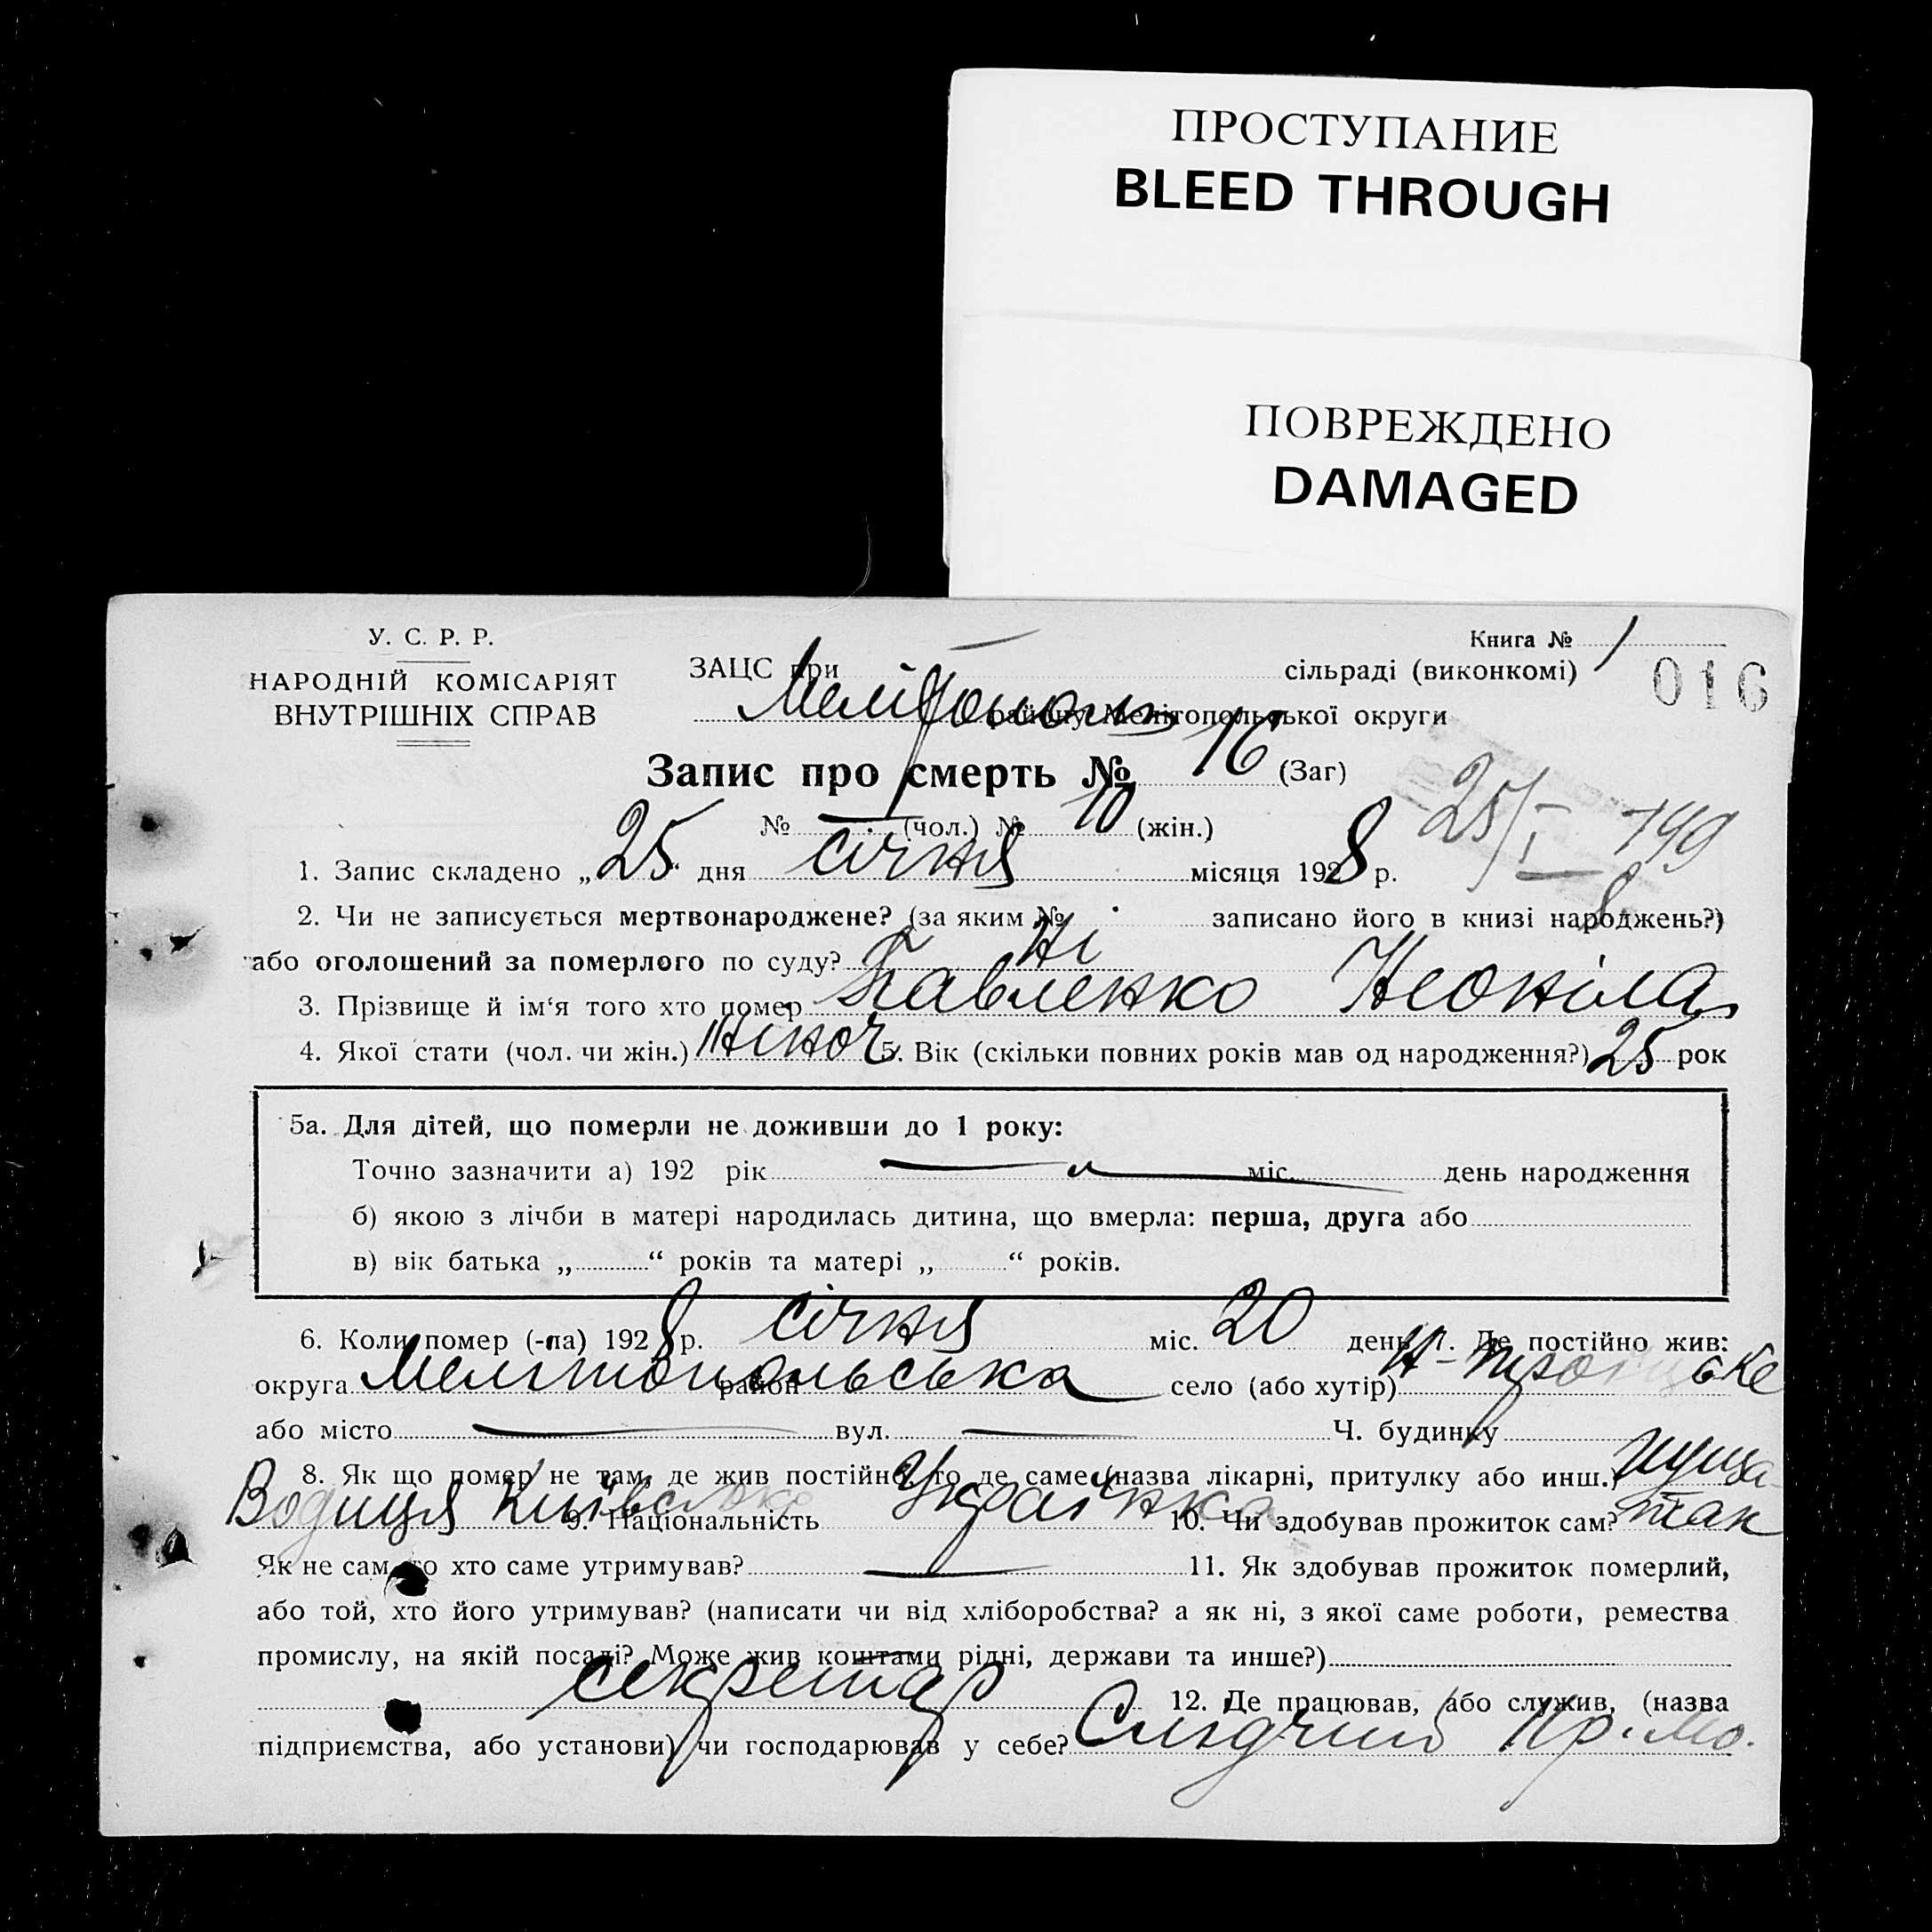 ПРОСТУПАНИЕ
BLEED THROUGH
ПОВРЕЖДЕНО
DAMAGED
У. С. Р. Р.
НАРОДНІЙ КОМІСАРІЯТ
ВНУТРІШНІХ СПРАВ
Книга № 1
016
ЗАЦС при сільраді (виконкомі)
Мелітополь району Мелітопольської округи
Запис про смерть № 16 (Заг)
25/I
№ — (чол.) № 10 (жін.)
1. Запис складено „25“ дня січня місяця 1928 р.
2. Чи не записується мертвонароджене? (за яким № записано його в книзі народжень?)
або оголошений за померлого по суду? Ні
3. Прізвище й ім‘я того хто помер Павленко Неоніла
4. Якої стати (чол. чи жін.) жіноч 5. Вік (скільки повних років мав од народження?) 25 рок
5а. Для дітей, що померли не доживши до 1 року:
Точно зазначити а) 192 рік міс. день народження
б) якою з лічби в матері народилась дитина, що вмерла: перша, друга або
в) вік батька „ “ років та матері „ “ років.
6. Коли помер (-ла) 1928 р. січня міс. 20 день 7. Де постійно жив:
округа Мелітопольська район село (або хутір) Н-Троицьке
або місто — вул. — Ч. будинку
8. Як що помер не там, де жив постійно, то де саме (назва лікарні, притулку або инш.) Пуща-
Водиця Київське 9. Національність Українка 10. Чи здобував прожиток сам? так
Як не сам, то хто саме утримував? — 11. Як здобував прожиток померлий,
або той, хто його утримував? (написати чи від хліборобства? а як ні, з якої саме роботи, ремества
промислу, на якій посаді? Може жив коштами рідні, держави та инше?)
секретар 12. Де працював, або служив, (назва
підприємства, або установи) чи господарював у себе? Слідчий